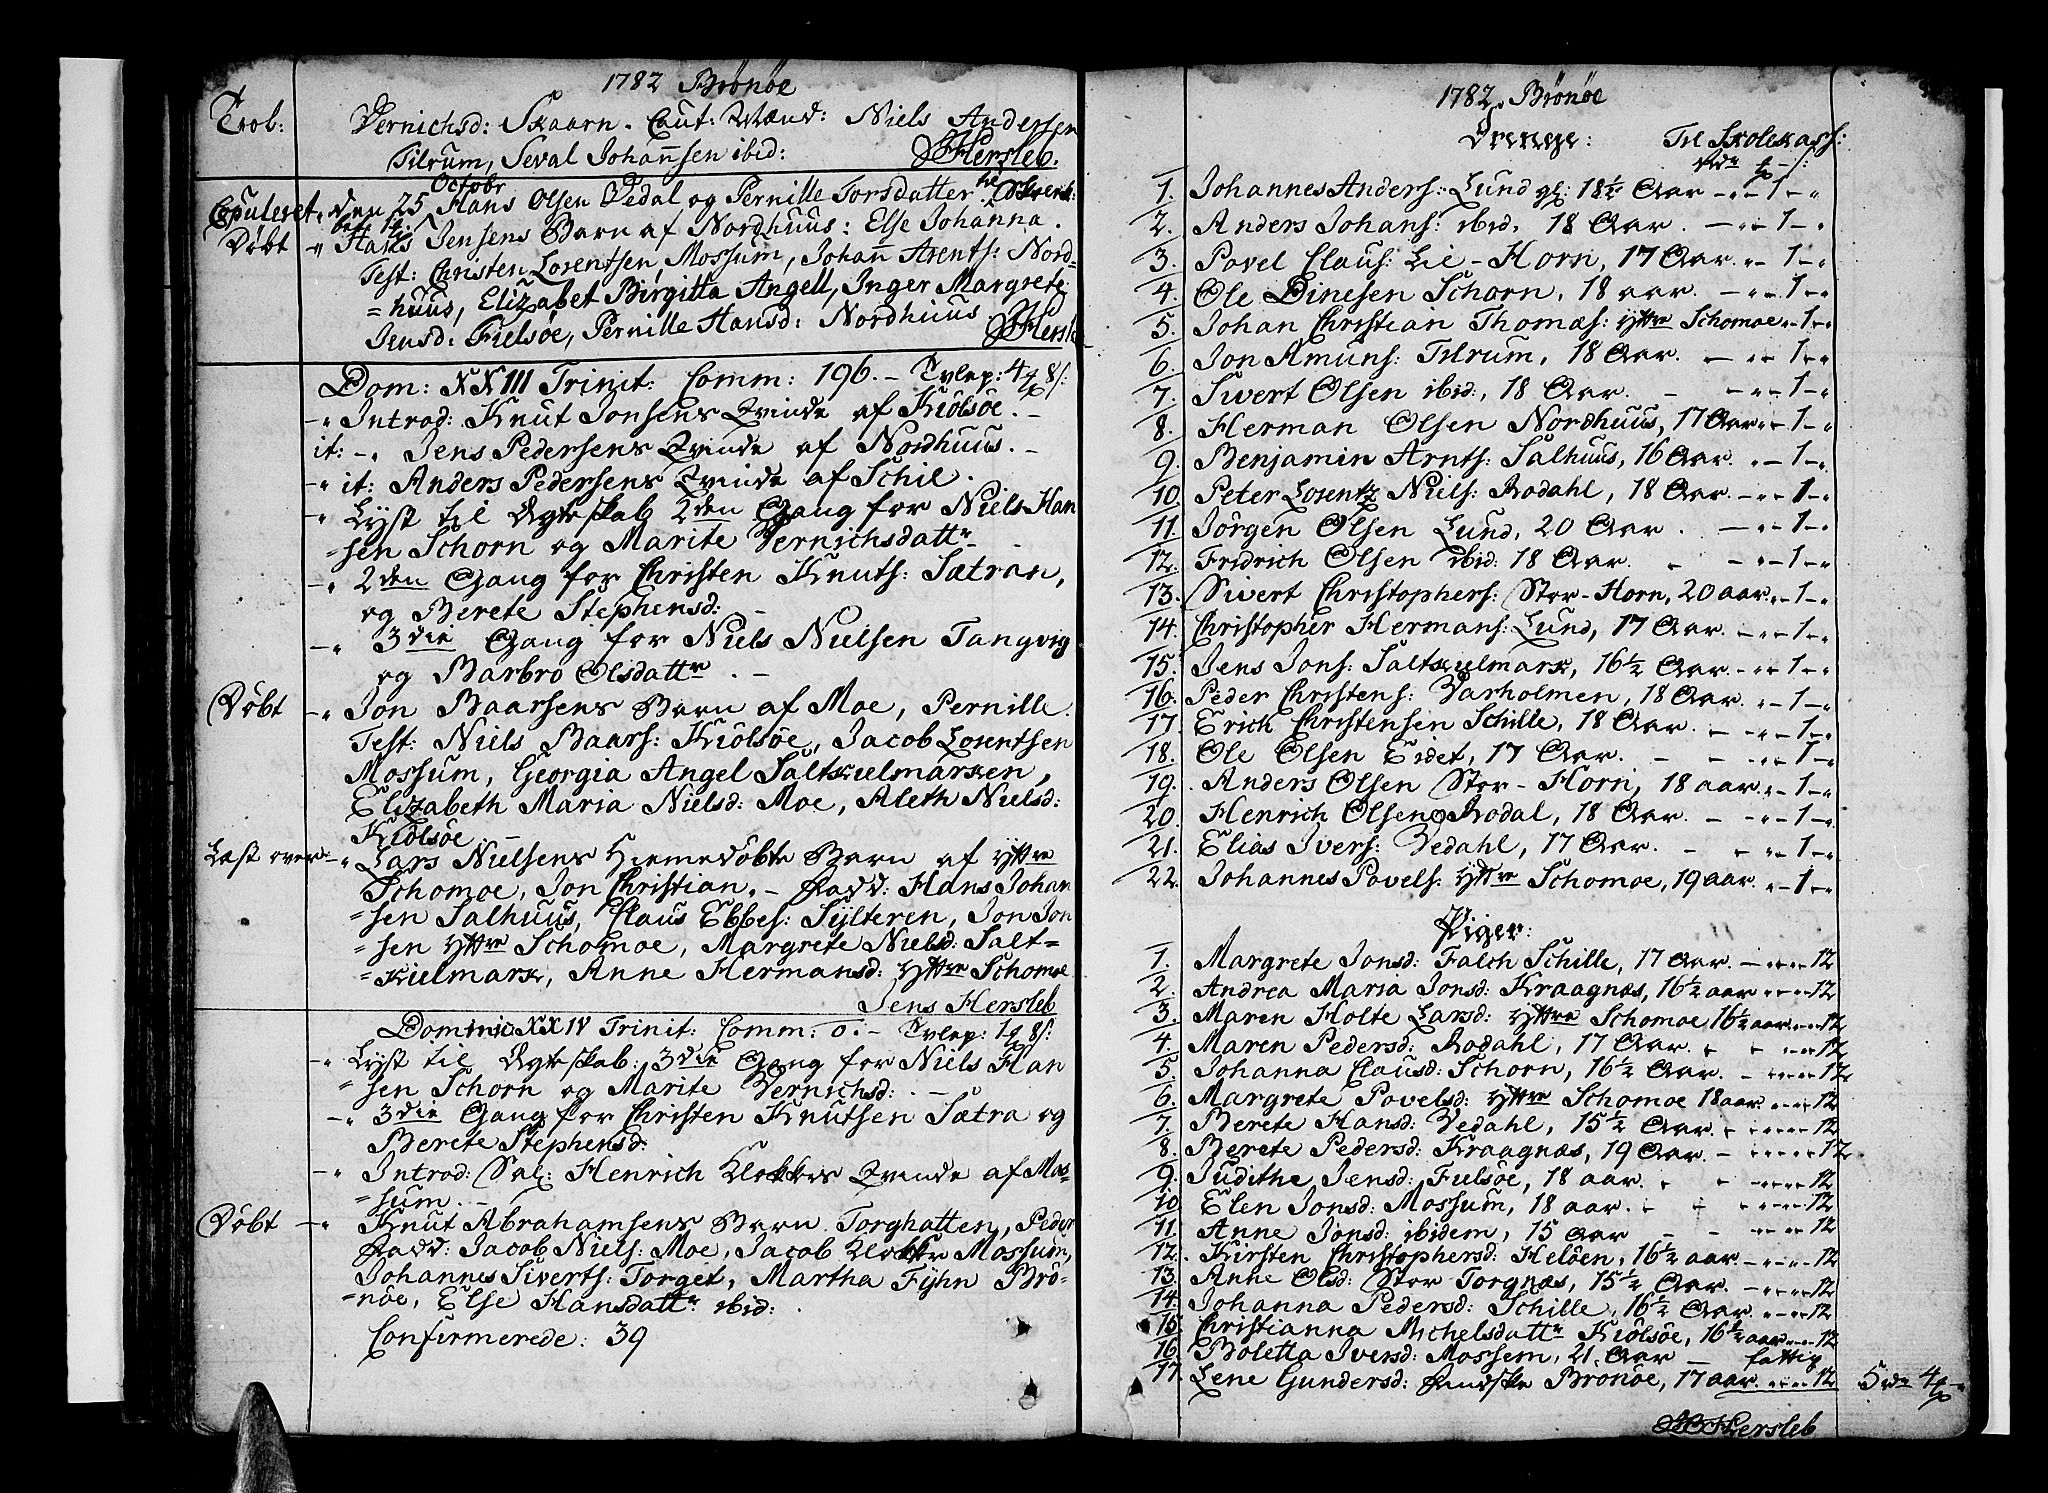 1782 Brönöe
Trol: Vernichsd: Skaarn. Caut: Mænd: Niels Andersen
Tilrum, Seval Johansen ibid: Hersleb.
Copuleret, den 25 Octobr Hans Olsen Vedal og Pernille Torsdatter
Døbt -" Hans Jensens Barn af Nordhuus: Else Johanna.
Test: Christen Lorentsen Mossum, Johan Arents: Nord=
=huus, Elizabet Birgitta Angell, Inger Margrete
Jensd: Fielsøe, Pernille Hansd: Nordhuus. Hersleb
Dom: XXIII Trinit: Comm: 196. - Tvlep: 4 8/:
-" Introd: Knut Jonsens Qvinde af Kiölsöe. -
it: -" Jens Pedersens Qvinde af Nordhuus. -
-" it: Anders Pedersens Qvinde af Schil.
-" Lyst til Ægteskab 2den Gang for Niels Han
=sen Schorn og Marite Vernichsdattr -
-" 2den Gang for Christen Knuts: Sætran,
og Berete Stephensd: -
-" 3die Gang for Niels Nielsen Tangvig
og Barbro Olsdattr . -
Døbt -" Jon Baarsens Barn af Moe, Pernille.
Test: Niels Baars: Kiölsöe, Jacob Lorentsen
Mossum, Georgia Angel Saltkielmarken,
Elizabeth Maria Nielsd: Moe, Aleth Nielsd:
Kiölsöe. -
Læst over -" Lars Nielsens Hiemedöbte Barn af Yttre
Schomoe, Jon Christian. - Fadd: Hans Johan
=sen Salhuus, Claus Ebbes: Sÿlteren, Jon Jon
=sen Yttre Schomoe, Margrete Nielsd: Salt=
=kielmark, Anne Hermansd: Yttre Schomoe
Jens Hersleb
Dominic XXIV Trinit: Comm: 0. - Tvlep: 1 8/:
-" Lyst til Ægteskab: 3die Gang for Niels Han
=sen Schorn og Marite Vernichsd: . -
-" 3die Gang for Christen Knutsen Sætra og
Berete Stephensd:
-" Introd: Sal: Henrich Klokkers Qvinde af Mos=
=sum. -
Døbt -" Knut Abrahamsens Barn Torghatten, Peder
Fadd: Jacob Niels: Moe, Jacob Klokker Mossum,
Johannes Siverts: Torget, Martha Fÿhn Brö=
=nöe, Else Hansdattr ibid: .
Confirmerede: 39
1782. Brönöe
Drenge: Til Skolekass:
1. Johannes Anders: Lund gl: 18½ Aar -"-1-"
2. Anders Johans: ibid. 18 Aar. -"-1-"
3. Povel Claus: Lie-Horn, 17 Aar. "-1-"
4. Ole Dinesen Schorn, 18 aar. -"-1-"
5. Johan Christian Thomas: Yttre Schomoe "-1-"
6. Jon Amuns: Tilrum, 18 Aar. -"-1-"
7. Sivert Olsen ibid:, 18 Aar. -"-1-"
8. Herman Olsen Nordhuus, 17 Aar "-1-"
9. Benjamin Arnts: Salhuus, 16 Aar. "-1-"
10 Peter Lorentz Niels: Rodahl, 18 Aar. -"-1-"
11. Jörgen Olsen Lund, 20 Aar. -"-1-"
12. Fridrich Olsen ibid: 18 Aar. -"-1-"
13. Sivert Christophers: Stor-Horn, 20 aar. "-1-"
14. Christopher Hermans: Lund, 17 Aar. -"-1-"
15. Jens Jons: Saltkielmark, 16½ Aar. -"-1-"
16. Peder Christens: Varholmen, 18 Aar. "-1-"
17. Erich Christensen Schille, 18 Aar. -"-1-"
18. Ole Olsen Eidet, 17 Aar. -"-1-"
19. Anders Olsen Stor-Horn, 18 aar. "-1-"
20. Henrich Olsen Rodal, 18 Aar. -"-1-"
21. Elias Ivers: Vedahl, 17 Aar. -"-1-"
22. Johannes Povels: Yttre Schomoe, 19 aar. "-1-"
Piger:
1. Margrete Jonsd: Falch Schille, 17 Aar. -"-"12
2. Andrea Maria Jonsd: Kraagnæs, 16½ aar "-"12
3. Maren Holte Larsd: Yttre Schomoe, 16½ aar "-"12
4. Maren Pedersd: Rodahl, 17 Aar. "-"12
5. Johanna Clausd: Schorn, 16½ Aar. -"-"12
6. Margrete Povelsd: Yttre Schomoe 18 aar. "-"12
7. Berete Hansd: Vedahl, 15½ Aar. "-"12
8. Berete Pedersd: Kraagnæs, 19 Aar. -"-"12
9. Judithe Jensd: Fielsöe, 18 aar. "-"12
10 Elen Jonsd: Mossum, 18 aar. "-"12
11. Anne Jonsd: ibidem, 15 Aar -"-"12
12. Kirsten Christophersd: Helöen, 16½ aar. -"-"12
13. Anne Olsd: Stor Torgnæs, 15½ Aar. -"-"12
14. Johanna Pedersd: Schille, 16½ Aar. -"-"12
15. Christianna Michelsdattr Kiölsöe, 16½ aar "-"12
16 Boletta Iversd: Mossem, 21. Aar - fattig
17. Lene Gundersd: Brönöe, 17 aar. "-"12 5 rdr 4
Hersleb